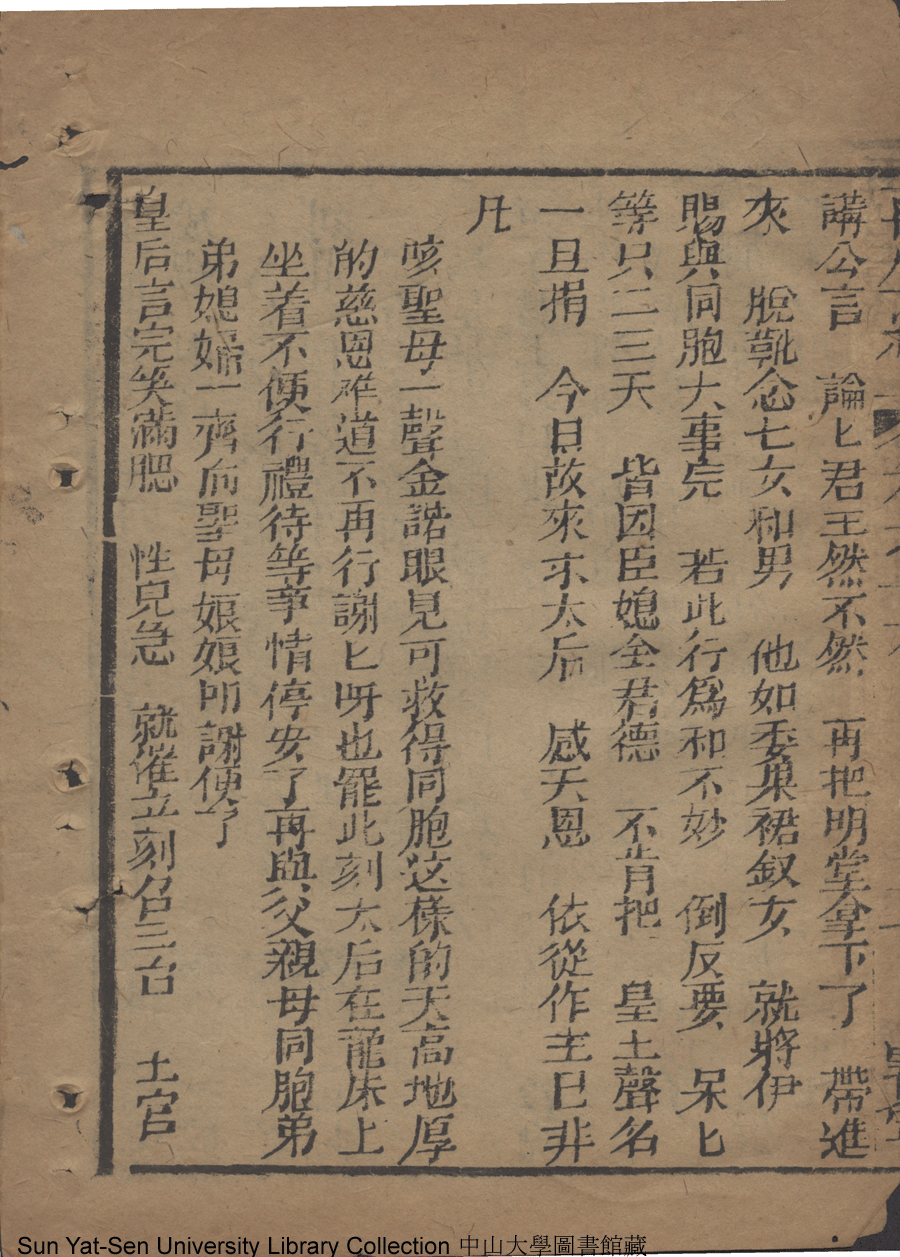 講公言　論匕君王然不然　再把明堂拿下了　帶進
來　脫靴念七女和男　他如委果裙釵女　就將伊
賜與同胞大事完　若此行為和不妙　倒反要　呆匕
等只二三天　皆因臣媳全君德　不肯把　皇土聲名
一旦捐　今日故來求太后　感天恩　依從作主已非
凡
咳聖母一聲金諾眼見可救得同胞这樣的天高地厚
的慈恩难道不再行謝匕呀也罷此刻太后在龍床上
坐着不便行禮待等事情停安了再與父親母同胞弟
弟媳婦一齊向聖母娘娘叩謝便了
皇后言完笑滿腮　性兒急　就催立刻召三台　土官
Sun Yat-Sen University Library Collection 中山大學圖書館藏